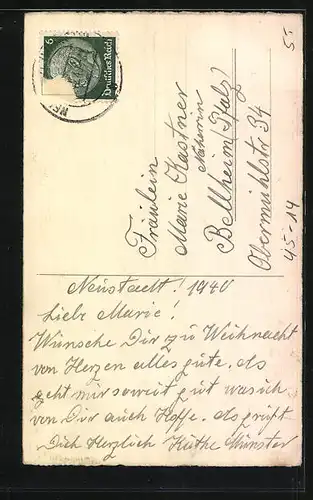 6
Deutsches Reich
5.-
Fräulein
Marie Kastner
Näherin
Bellheim (Pfalz)
Obermühlstr 34
45-14
Neustadt! 1940
Liebe Marie!
Wünsche Dir zu Weihnacht
von Herzen alles gute. Es
geht mir soweit gut was ich
von Dir auch Hoffe. Es grüßt
Dich Herzlich Käthe Münster